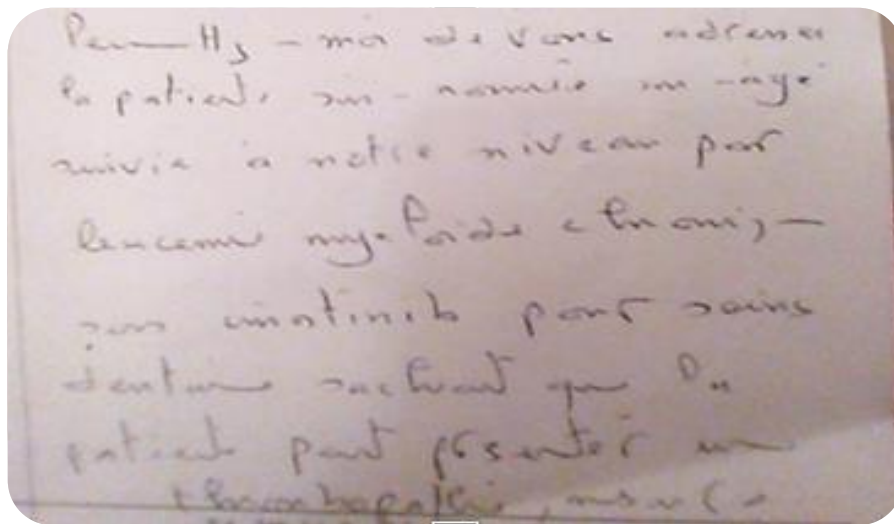 Permettez-moi de vous adresser
la patiente sus-nommée sus-âgé
suivie à notre niveau pour
leucémie myéloïde chronique
sous imatinib pour soins
dentaire sachant que la
patiente peut présenter une
thrombopathie